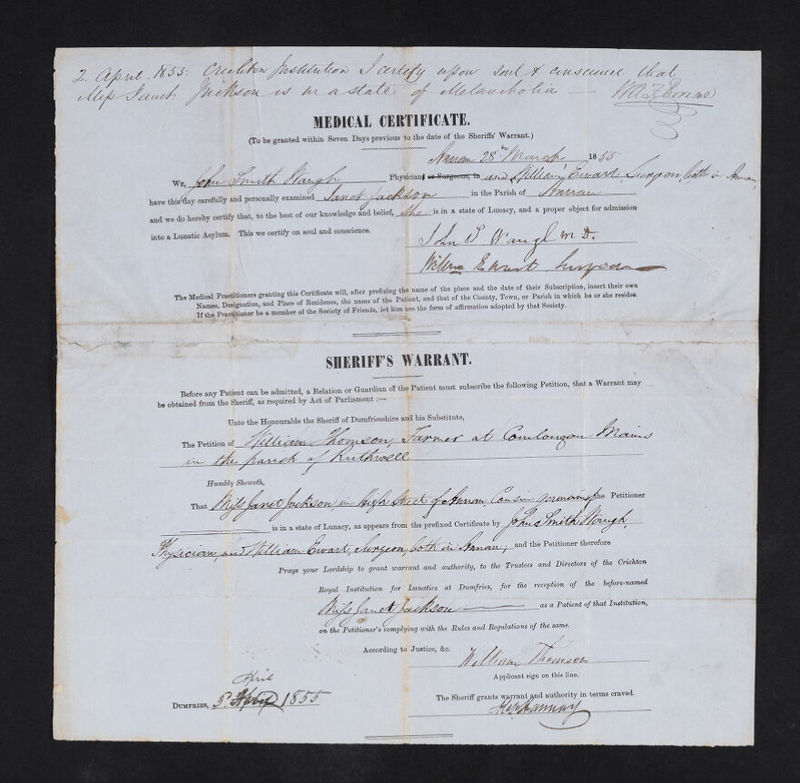 2 April 1855. Crichton Institution I certify upon soul & conscience that
Miss Janet Jackson is in a state of Melancholia — W A F Browne
MEDICAL CERTIFICATE.
(To be granted within Seven Days previous to the date of the Sheriffs' Warrant.)
Annan 28th March 1855
We, John Smith Waugh Physician or Surgeons, in and William Ewart, Surgeon, both in Annan,
have this day carefully and personally examined Janet Jackson in the Parish of Annan
and we do hereby certify that, to the best of our knowledge and belief, She is in a state of Lunacy, and a proper object for admission
into a Lunatic Asylum. This we certify on soul and conscience.
John S. Waugh M.D.
William Ewart Surgeon
The Medical Practitioners granting this Certificate will, after prefixing the name of the place and the date of their Subscription, insert their own
Names, Designation, and Place of Residence, the name of the Patient, and that of the County, Town, or Parish in which he or she resides.
If the Practitioner be a member of the Society of Friends, let him use the form of affirmation adopted by that Society.
SHERIFF'S WARRANT.
Before any Patient can be admitted, a Relation or Guardian of the Patient must subscribe the following Petition, that a Warrant may
be obtained from the Sheriff, as required by Act of Parliament :—
Unto the Honourable the Sheriff of Dumfriesshire and his Substitute,
The Petition of William Thomson, Farmer at Comlongon Mains
in the parish of Ruthwell
Humbly Sheweth,
That Miss Janet Jackson, in High Street of Annan, Cousin german of the Petitioner
is in a state of Lunacy, as appears from the prefixed Certificate by John Smith Waugh,
Physician, and William Ewart, Surgeon, both in Annan; and the Petitioner therefore
Prays your Lordship to grant warrant and authority, to the Trustees and Directors of the Crichton
Royal Institution for Lunatics at Dumfries, for the reception of the before-named
Miss Janet Jackson — as a Patient of that Institution,
on the Petitioner's complying with the Rules and Regulations of the same.
According to Justice, &c.
William Thomson
Applicant sign on this line.
April
DUMFRIES, 5 April 1855
The Sheriff grants warrant and authority in terms craved.
Hannay